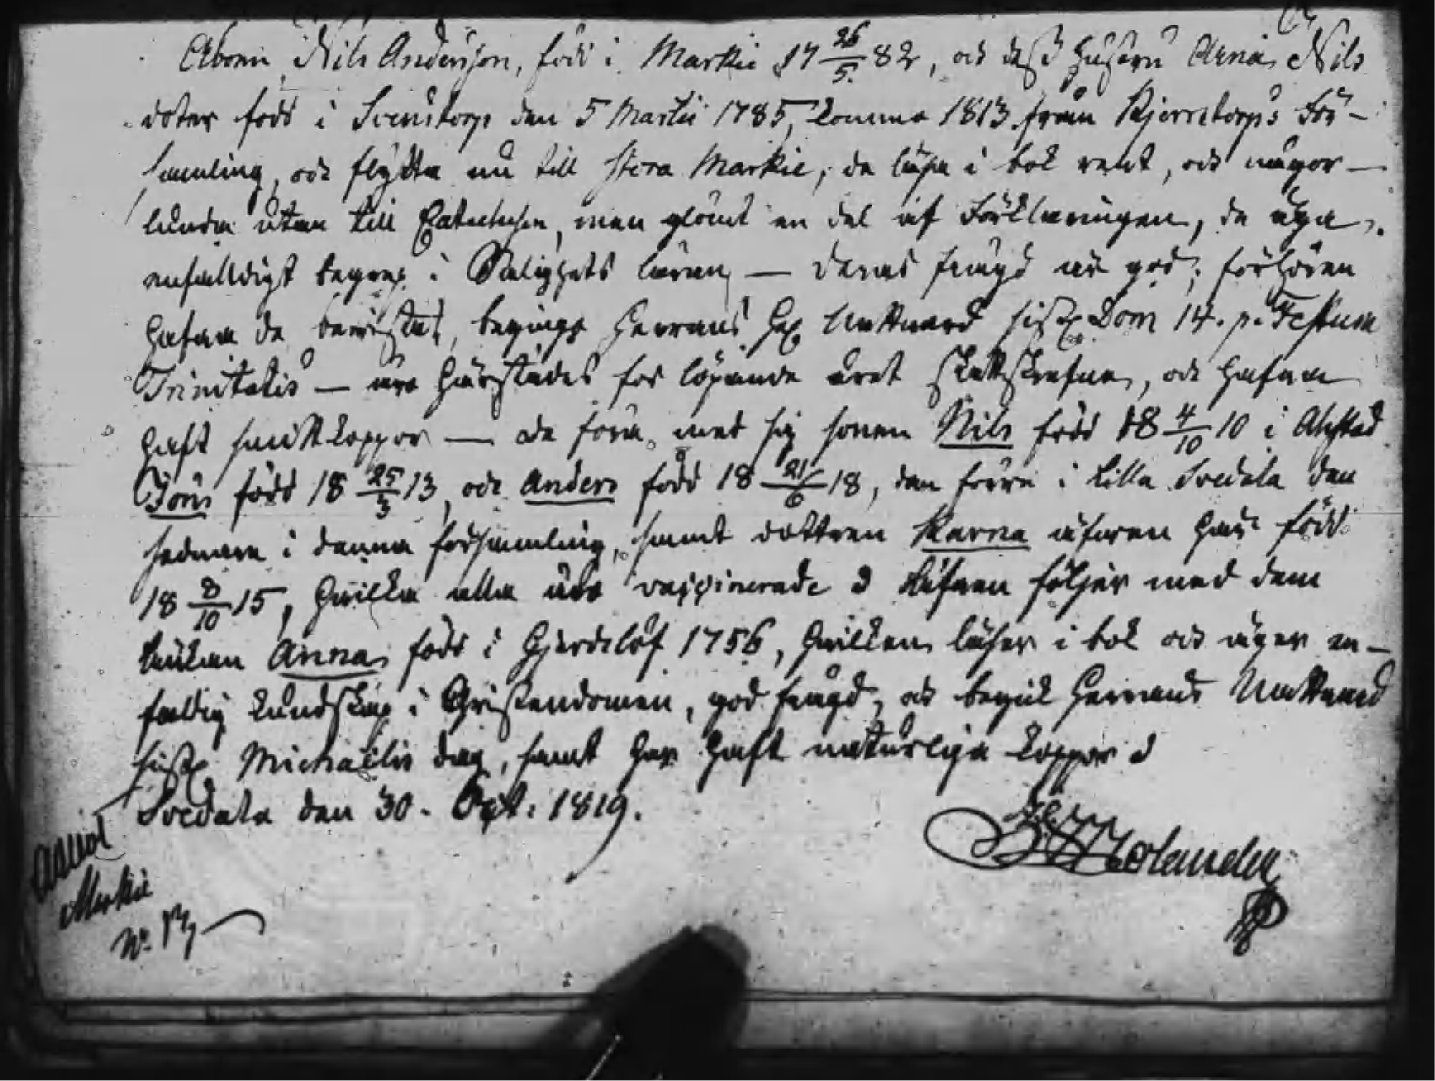 Åboen Nils Andersson, född i Markie 17 26/5 82, och dess hustru Elna Nils
dotter född i Svenstorp den 5 Martii 1785, komne 1813 från Kjerrstorps För-
samling, och flytta nu till Stora Markie, de läsa i bok rent, och någor-
lunda utan till Catechesen, men glömt en del af Förklaringen, de äga
enfalldigt begrep i Salighets läran, — deras frägd är god; förhören
hafva de bevistat, begingo Herrans H. Nattvard sistl. Dom 14. p. Festum
Trinitatis — äro härstädes för löpande året skattskrefne, och hafva
haft smittkoppor — de föra med sig sonen Nils född 18 4/10 10 i Alstad
Jöns född 18 25/3 13, och Anders född 18 21/6 18, den förre i Lilla Svedala den
sednare i denna församling, samt dottren Karna äfven här född
18 8/10 15, hvilka alla äro vaccinerade Äfven följer med dem
Enkan Anna född i Gjerdslöf 1756, hvilken läser i bok och äger en-
faldig kundskap i Christendomen, god frägd, och begick Herrans Nattvard
sistl. Michaelis dag, samt har haft naturliga koppor
Svedala den 30. Oct: 1819.
Markie
No. 17